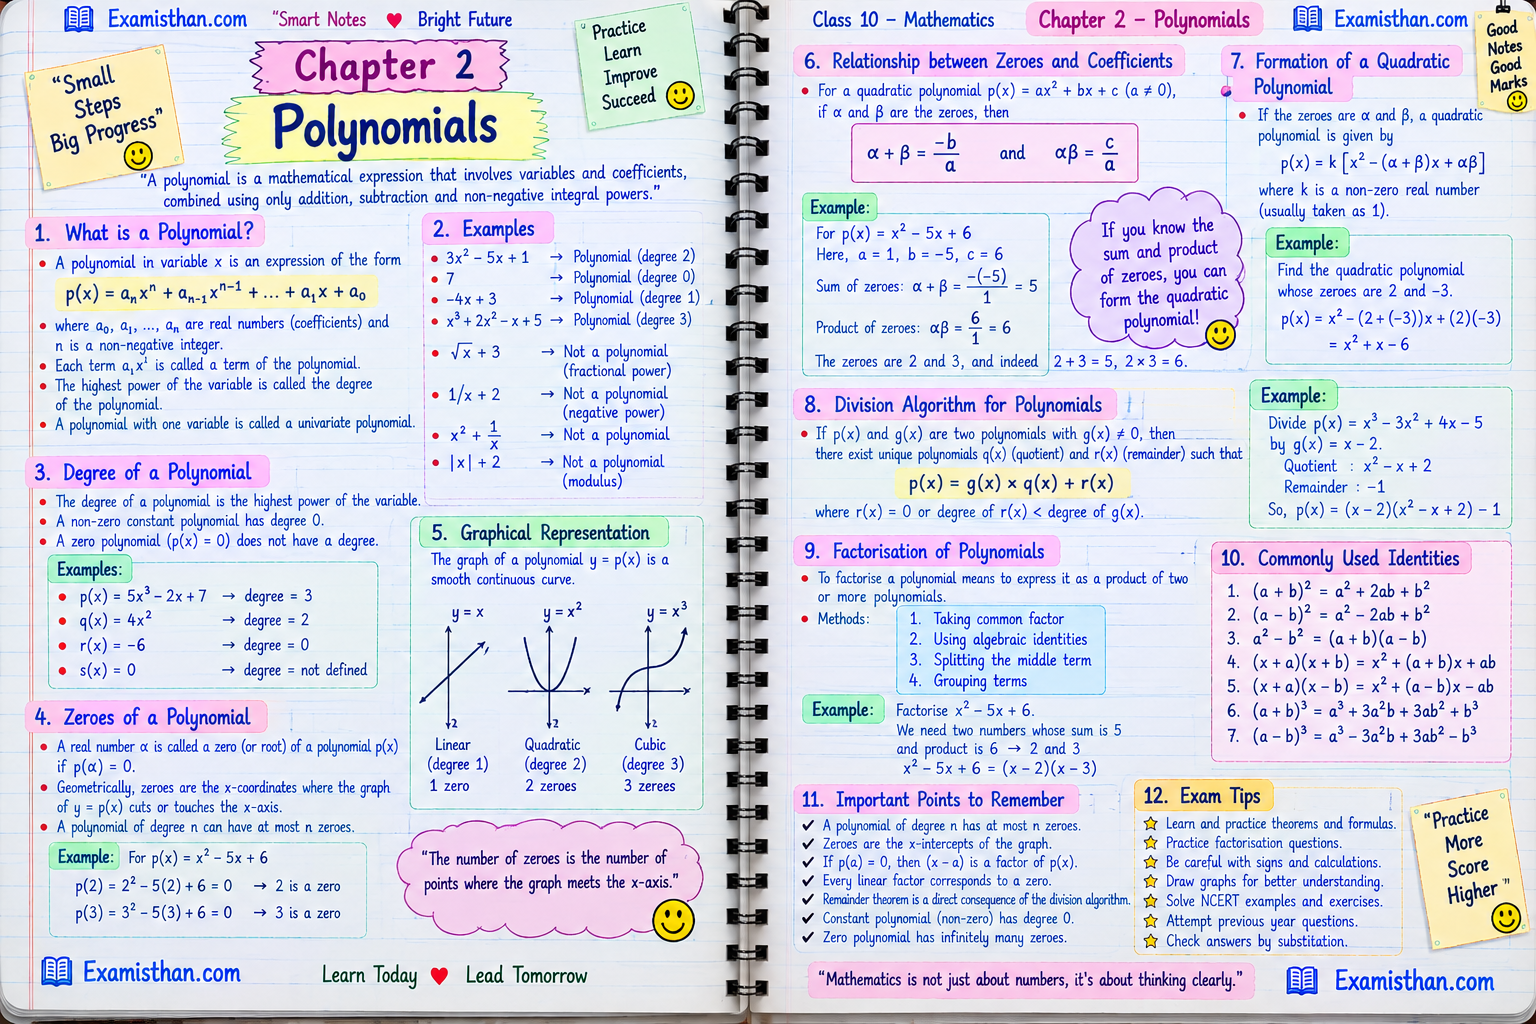 Examisthan.com
"Smart Notes ♥ Bright Future
"Small
Steps
Big Progress"
Chapter 2
Polynomials
Practice
Learn
Improve
Succeed
"A polynomial is a mathematical expression that involves variables and coefficients,
combined using only addition, subtraction and non-negative integral powers."
1. What is a Polynomial?
• A polynomial in variable x is an expression of the form
p(x) = aₙxⁿ + aₙ₋₁xⁿ⁻¹ + ... + a₁x + a₀
• where a₀, a₁, ..., aₙ are real numbers (coefficients) and
n is a non-negative integer.
• Each term a₁xⁱ is called a term of the polynomial.
• The highest power of the variable is called the degree
of the polynomial.
• A polynomial with one variable is called a univariate polynomial.
2. Examples
• 3x² − 5x + 1 → Polynomial (degree 2)
• 7 → Polynomial (degree 0)
• −4x + 3 → Polynomial (degree 1)
• x³ + 2x² − x + 5 → Polynomial (degree 3)
• √x + 3 → Not a polynomial
(fractional power)
• 1/x + 2 → Not a polynomial
(negative power)
• x² + 1/x → Not a polynomial
• |x| + 2 → Not a polynomial
(modulus)
3. Degree of a Polynomial
• The degree of a polynomial is the highest power of the variable.
• A non-zero constant polynomial has degree 0.
• A zero polynomial (p(x) = 0) does not have a degree.
Examples:
• p(x) = 5x³ − 2x + 7 → degree = 3
• q(x) = 4x² → degree = 2
• r(x) = −6 → degree = 0
• s(x) = 0 → degree = not defined
4. Zeroes of a Polynomial
• A real number α is called a zero (or root) of a polynomial p(x)
if p(α) = 0.
• Geometrically, zeroes are the x-coordinates where the graph
of y = p(x) cuts or touches the x-axis.
• A polynomial of degree n can have at most n zeroes.
Example: For p(x) = x² − 5x + 6
p(2) = 2² − 5(2) + 6 = 0 → 2 is a zero
p(3) = 3² − 5(3) + 6 = 0 → 3 is a zero
5. Graphical Representation
The graph of a polynomial y = p(x) is a
smooth continuous curve.
y = x y = x² y = x³
2 2 2
Linear Quadratic Cubic
(degree 1) (degree 2) (degree 3)
1 zero 2 zeroes 3 zerees
"The number of zeroes is the number of
points where the graph meets the x-axis."
Examisthan.com
Learn Today ♥ Lead Tomorrow
Class 10 – Mathematics
Chapter 2 – Polynomials
Examisthan.com
Good
Notes
Good
Marks
6. Relationship between Zeroes and Coefficients
• For a quadratic polynomial p(x) = ax² + bx + c (a ≠ 0),
if α and β are the zeroes, then
α + β = −b/a and αβ = c/a
Example:
For p(x) = x² − 5x + 6
Here, a = 1, b = −5, c = 6
Sum of zeroes: α + β = −(−5)/1 = 5
Product of zeroes: αβ = 6/1 = 6
The zeroes are 2 and 3, and indeed 2 + 3 = 5, 2 × 3 = 6.
If you know the
sum and product
of zeroes, you can
form the quadratic
polynomial!
7. Formation of a Quadratic
Polynomial
• If the zeroes are α and β, a quadratic
polynomial is given by
p(x) = k [x² − (α + β)x + αβ]
where k is a non-zero real number
(usually taken as 1).
Example:
Find the quadratic polynomial
whose zeroes are 2 and −3.
p(x) = x² − (2 + (−3))x + (2)(−3)
= x² + x − 6
8. Division Algorithm for Polynomials
• If p(x) and g(x) are two polynomials with g(x) ≠ 0, then
there exist unique polynomials q(x) (quotient) and r(x) (remainder) such that
p(x) = g(x) × q(x) + r(x)
where r(x) = 0 or degree of r(x) < degree of g(x).
Example:
Divide p(x) = x³ − 3x² + 4x − 5
by g(x) = x − 2.
Quotient : x² − x + 2
Remainder : −1
So, p(x) = (x − 2)(x² − x + 2) − 1
9. Factorisation of Polynomials
• To factorise a polynomial means to express it as a product of two
or more polynomials.
• Methods:
1. Taking common factor
2. Using algebraic identities
3. Splitting the middle term
4. Grouping terms
Example: Factorise x² − 5x + 6.
We need two numbers whose sum is 5
and product is 6 → 2 and 3
x² − 5x + 6 = (x − 2)(x − 3)
10. Commonly Used Identities
1. (a + b)² = a² + 2ab + b²
2. (a − b)² = a² − 2ab + b²
3. a² − b² = (a + b)(a − b)
4. (x + a)(x + b) = x² + (a + b)x + ab
5. (x + a)(x − b) = x² + (a − b)x − ab
6. (a + b)³ = a³ + 3a²b + 3ab² + b³
7. (a − b)³ = a³ − 3a²b + 3ab² − b³
11. Important Points to Remember
✔ A polynomial of degree n has at most n zeroes.
✔ Zeroes are the x-intercepts of the graph.
✔ If p(a) = 0, then (x − a) is a factor of p(x).
✔ Every linear factor corresponds to a zero.
✔ Remainder theorem is a direct consequence of the division algorithm.
✔ Constant polynomial (non-zero) has degree 0.
✔ Zero polynomial has infinitely many zeroes.
12. Exam Tips
☆ Learn and practice theorems and formulas.
☆ Practice factorisation questions.
☆ Be careful with signs and calculations.
☆ Draw graphs for better understanding.
☆ Solve NCERT examples and exercises.
☆ Attempt previous year questions.
☆ Check answers by substitution.
"Practice
More
Score
Higher"
"Mathematics is not just about numbers, it's about thinking clearly."
Examisthan.com